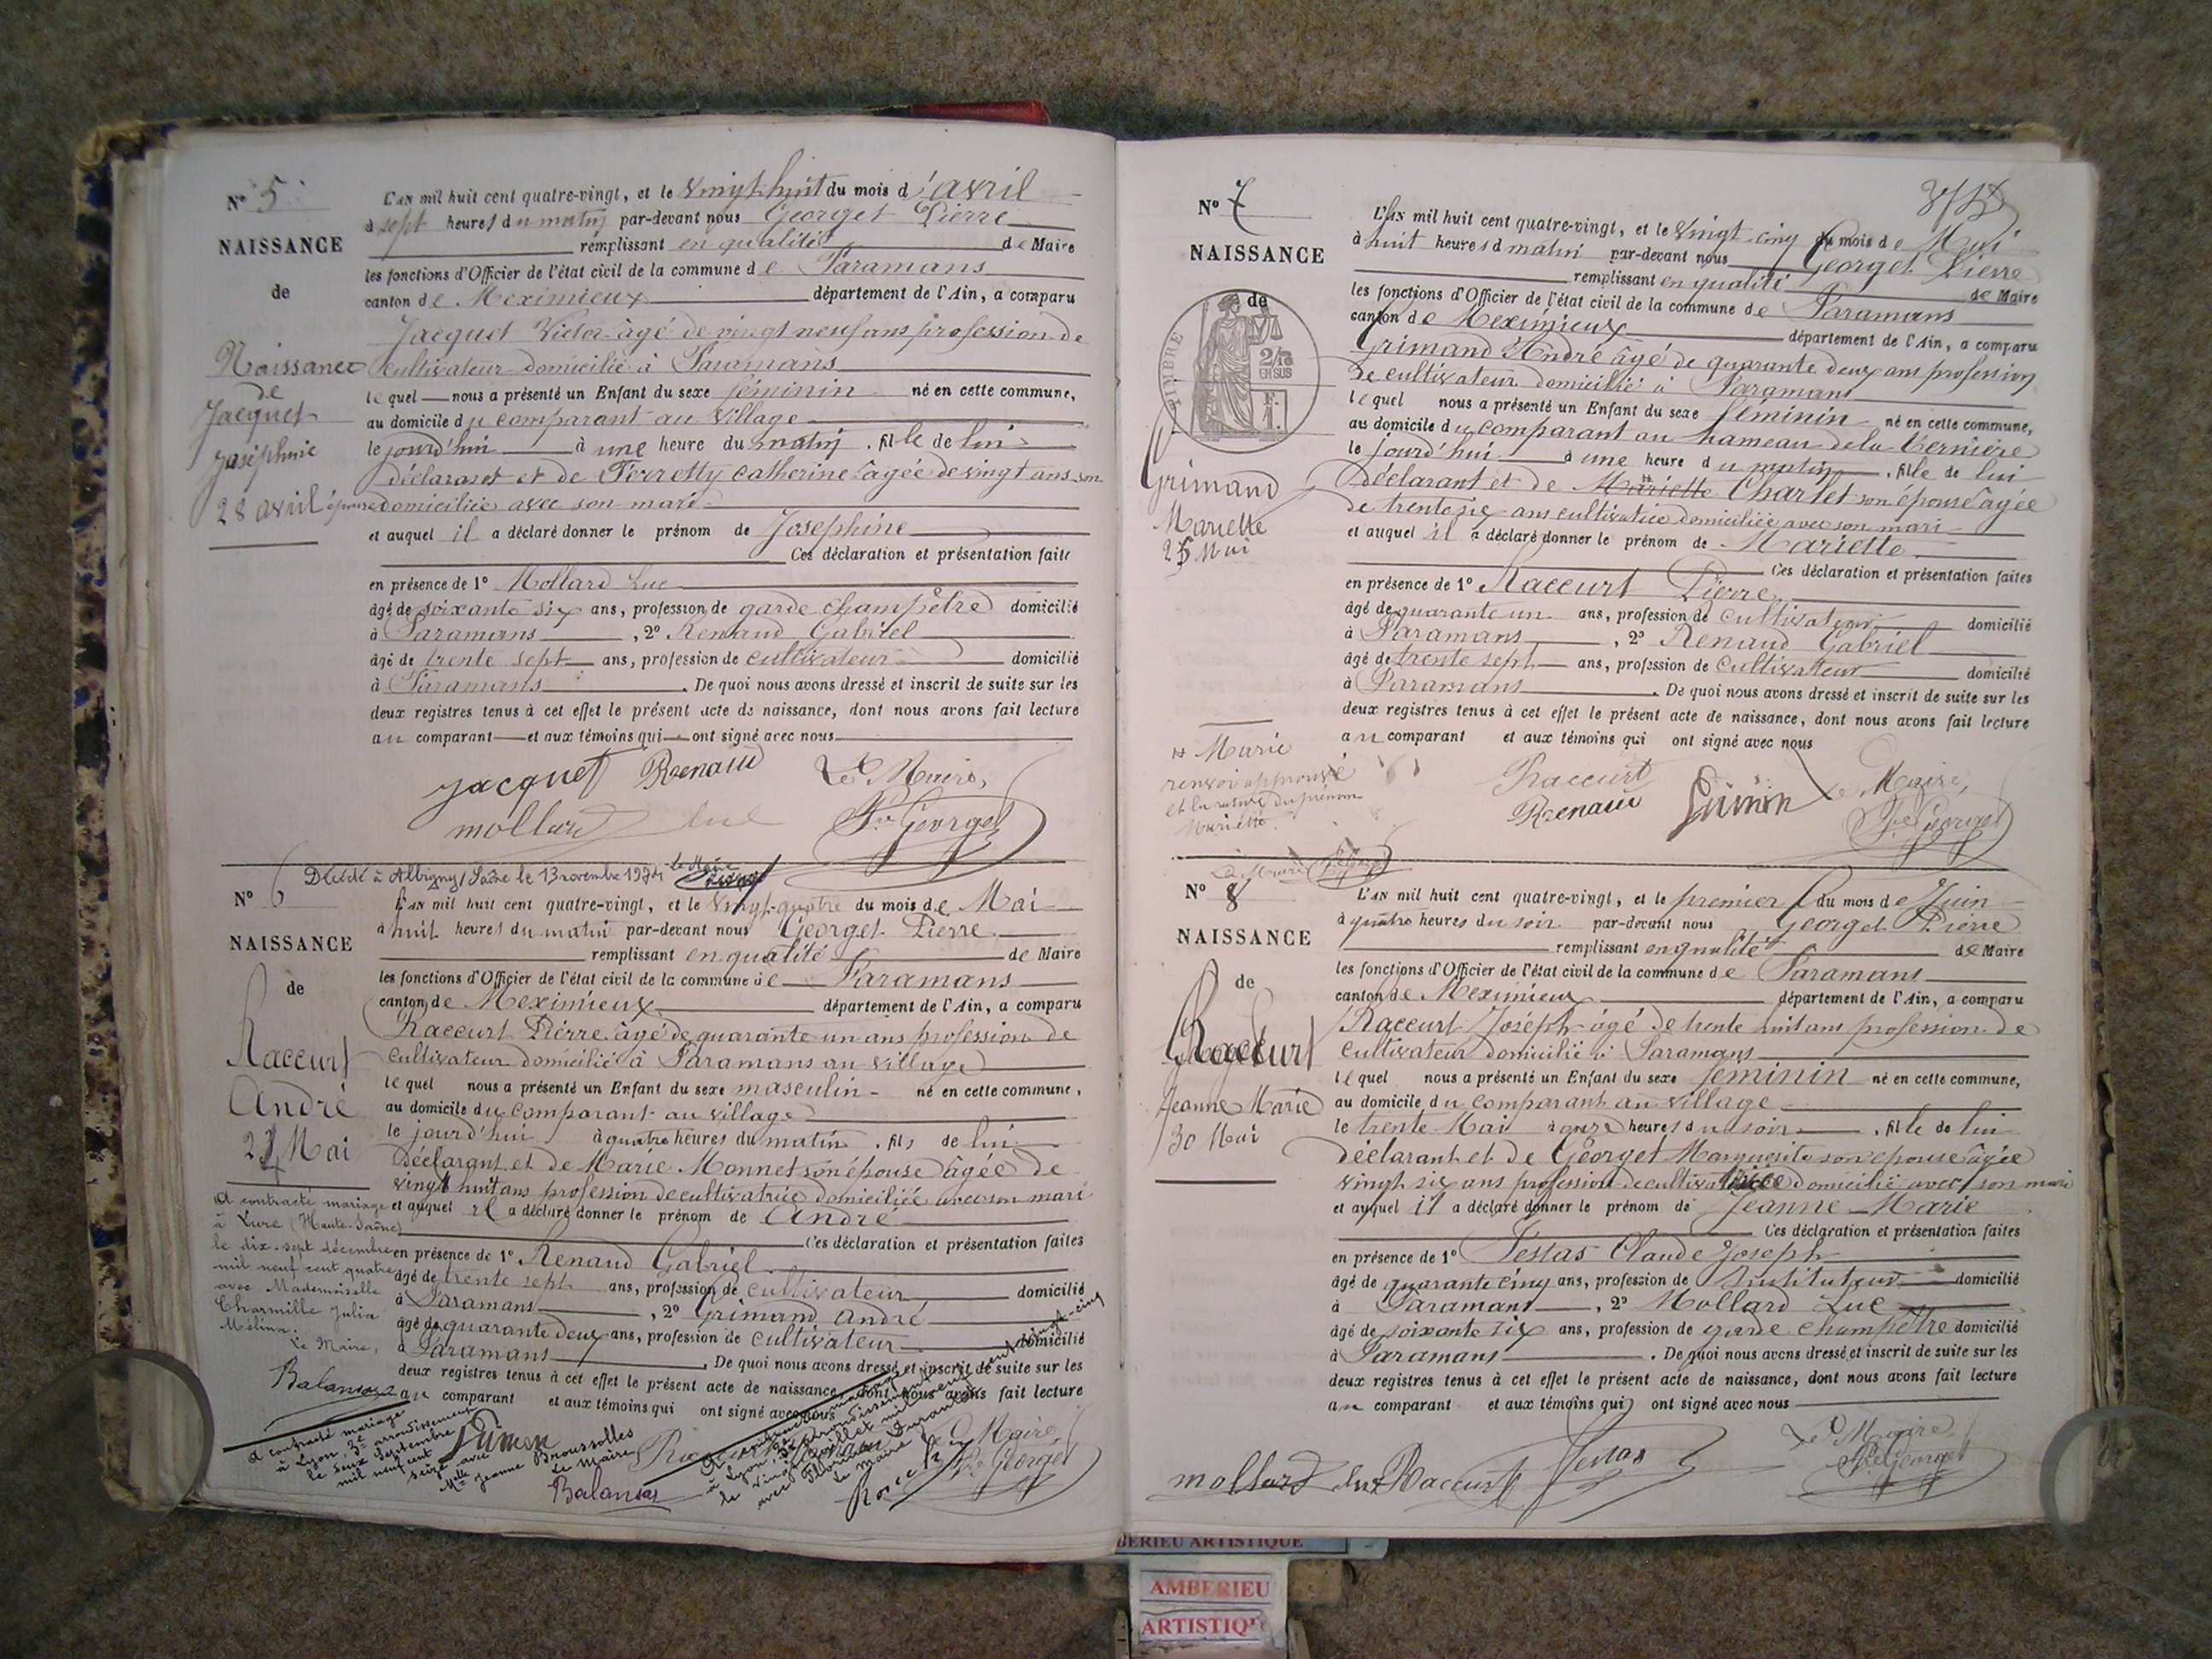 N° 5
NAISSANCE
de
Naissance
de
Jacquet
Joséphine
28 avril
L'AN mil huit cent quatre-vingt, et le vingt huit du mois d'avril
à sept heures du matin par-devant nous Georget Pierre
remplissant en qualité de Maire
les fonctions d'Officier de l'état civil de la commune de Faramans
canton de Meximieux département de l'Ain, a comparu
Jacquet Victor âgé de vingt neuf ans profession de
cultivateur domicilié à Faramans
lequel nous a présenté un Enfant du sexe féminin né en cette commune,
au domicile du comparant au village
le jourd'hui à une heure du matin, fille de lui
déclarant et de Ferretty Catherine âgée de vingt ans son
épouse domiciliée avec son mari
et auquel il a déclaré donner le prénom de Joséphine
Ces déclaration et présentation faite
en présence de 1° Mollard Luc
âgé de soixante six ans, profession de garde champêtre domicilié
à Faramans, 2° Renaud Gabriel
âgé de trente sept ans, profession de cultivateur domicilié
à Faramans. De quoi nous avons dressé et inscrit de suite sur les
deux registres tenus à cet effet le présent acte de naissance, dont nous avons fait lecture
au comparant et aux témoins qui ont signé avec nous
Jacquet Renaud Le Maire,
mollard luc Pre Georget
Décédé à Albigny s/ Saône le 13 novembre 1974 Le Maire
N° 6
NAISSANCE
de
Raccurt
André
24 Mai
L'AN mil huit cent quatre-vingt, et le vingt-quatre du mois de Mai
à huit heures du matin par-devant nous Georget Pierre
remplissant en qualité de Maire
les fonctions d'Officier de l'état civil de la commune de Faramans
canton de Meximieux département de l'Ain, a comparu
Raccurt Pierre âgé de quarante un ans profession de
cultivateur domicilié à Faramans au village
lequel nous a présenté un Enfant du sexe masculin né en cette commune,
au domicile du comparant au village
le jourd'hui à quatre heures du matin, fils de lui
déclarant et de Marie Monnet son épouse âgée de
vingt huit ans profession de cultivatrice domiciliée avec son mari
et auquel il a déclaré donner le prénom de André
Ces déclaration et présentation faites
en présence de 1° Renaud Gabriel
âgé de trente sept ans, profession de cultivateur domicilié
à Faramans, 2° Grimand André
âgé de quarante deux ans, profession de cultivateur domicilié
à Faramans. De quoi nous avons dressé et inscrit de suite sur les
deux registres tenus à cet effet le présent acte de naissance, dont nous avons fait lecture
au comparant et aux témoins qui ont signé avec nous
A contracté mariage
à Lure (Haute-Saône)
le dix-sept décembre
mil neuf cent quatre
avec Mademoiselle
Charmille Julia
Mélina.
Le Maire,
A contracté mariage
à Lyon, 3e arrondissement
le deux Septembre
mil neuf cent
seize avec
Mlle Jeanne Broussolles
Le Maire
A contracté mariage
à Lyon, arrondissement
le vingt juillet mil neuf cent vingt-cinq
avec
le maire
Le Maire,
Pre Georget
N° 7
NAISSANCE
de
TIMBRE
2/10
EN SUS
F.
1.
Grimand
Mariette
25 Mai
L'AN mil huit cent quatre-vingt, et le vingt-cinq du mois de Mai
à huit heures d matin par-devant nous Georget Pierre
remplissant en qualité de Maire
les fonctions d'Officier de l'état civil de la commune de Faramans
canton de Meximieux département de l'Ain, a comparu
Grimand André âgé de quarante deux ans profession
de cultivateur domicilié à Faramans
lequel nous a présenté un Enfant du sexe féminin né en cette commune,
au domicile du comparant au hameau de la Vernière
le jourd'hui à une heure du matin, fille de lui
déclarant et de Mariette Charlet son épouse âgée
de trente six ans cultivatrice domiciliée avec son mari
et auquel il a déclaré donner le prénom de Mariette
Ces déclaration et présentation faites
en présence de 1° Raccurt Pierre
âgé de quarante un ans, profession de cultivateur domicilié
à Faramans, 2° Renaud Gabriel
âgé de trente sept ans, profession de cultivateur domicilié
à Faramans. De quoi nous avons dressé et inscrit de suite sur les
deux registres tenus à cet effet le présent acte de naissance, dont nous avons fait lecture
au comparant et aux témoins qui ont signé avec nous
Marie
renvoi approuvé
et la rature du prénom
Mariette.
Le Maire
Raccurt
Renaud
Le Maire,
Pre Georget
N° 8
NAISSANCE
de
Raccurt
Jeanne Marie
30 Mai
L'AN mil huit cent quatre-vingt, et le premier du mois de Juin
à quatre heures du soir par-devant nous Georget Pierre
remplissant en qualité de Maire
les fonctions d'Officier de l'état civil de la commune de Faramans
canton de Meximieux département de l'Ain, a comparu
Raccurt Joseph âgé de trente huit ans profession de
cultivateur domicilié à Faramans
lequel nous a présenté un Enfant du sexe féminin né en cette commune,
au domicile du comparant au village
le trente Mai à onze heures du soir, fille de lui
déclarant et de Georget Marguerite son épouse âgée
vingt six ans profession de cultivatrice domicilié avec son mari
et auquel il a déclaré donner le prénom de Jeanne-Marie
Ces déclaration et présentation faites
en présence de 1° Festas Claude Joseph
âgé de quarante cinq ans, profession de Instituteur domicilié
à Faramans, 2° Mollard Luc
âgé de soixante six ans, profession de garde champêtre domicilié
à Faramans. De quoi nous avons dressé et inscrit de suite sur les
deux registres tenus à cet effet le présent acte de naissance, dont nous avons fait lecture
au comparant et aux témoins qui ont signé avec nous
mollard luc Raccurt Festas
Le Maire
Pre Georget
AMBERIEU ARTISTIQUE
AMBERIEU
ARTISTIQU